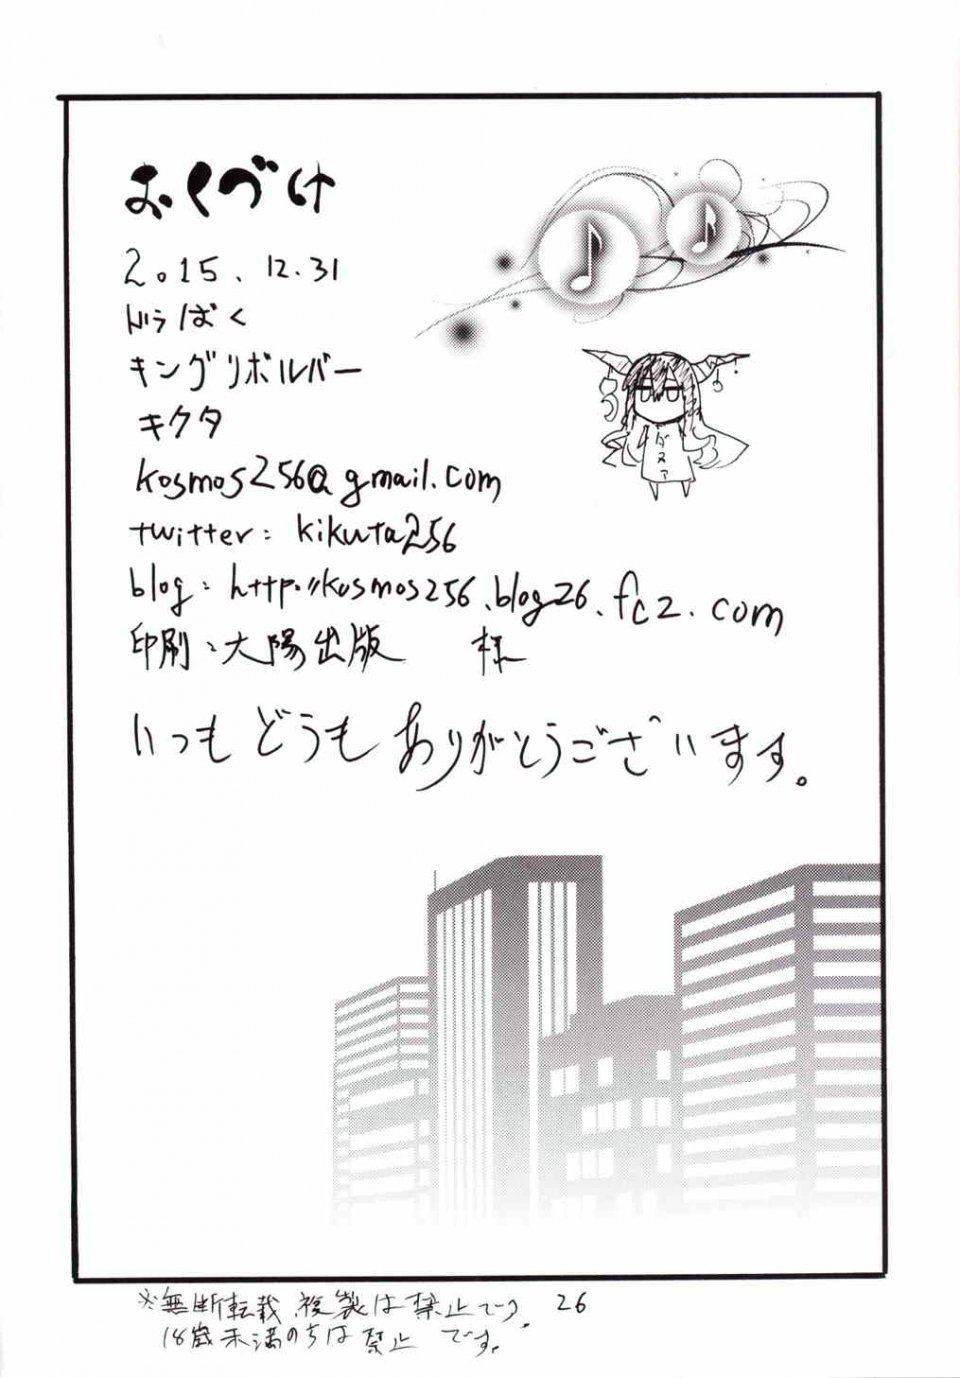 おくづけ
2015.12.31
ばく
キングリボルバー
キクタ
kosmos256@gmail.com
twitter: kikuta256
blog: http://kosmos256.blog26.fc2.com
印刷:大陽出版 様
いつもどうもありがとうございます。
ダヌア
※無断転載、複製は禁止です。 26
18歳未満のちは禁止です。